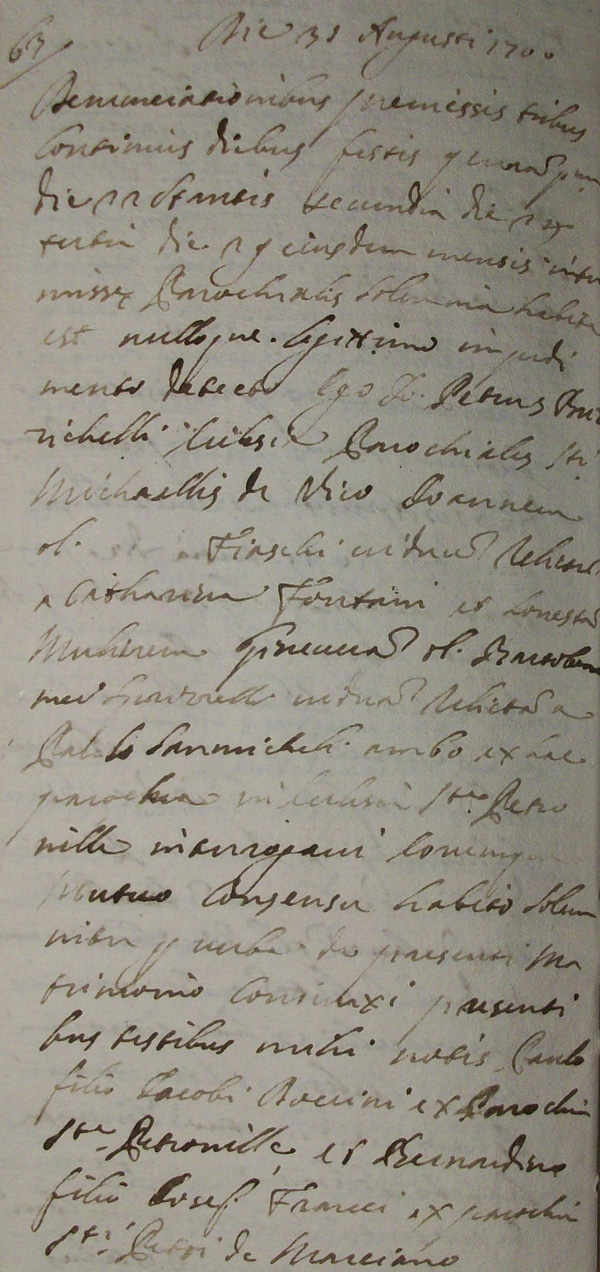 63 Die 31 Augusti 1700
Denunciationibus premissis tribus
Continuis diebus festis quarum prima
die 22 secunda die
tertia die 29 eiusdem mensis inter
misse Parochialis solemnia habita
est nulloque legittimo impedi
mento detecto Ego Petrus
richelli Parochialis Sti
Michaellis de Vico Joannem
ol. Fiaschi viduum relictum
a Catharina Fontani et honestam
Mulierem Gineuram ol. Bartolom
mei viduam relictam a
Paulo Sanmicheli ambo ex hac
parochia in Ecclesia Ste Petro
nille interrogaui eorumque
mutuo consensu habito solem
niter p uerba de presenti Ma
trimonio coniunxi presenti
bus testibus mihi notis Paulo
filio Jacobi Boccini ex Parochia
Ste Petronille et Bernardino
filio Josef Franci ex parochia
Sti Petri de Marciano